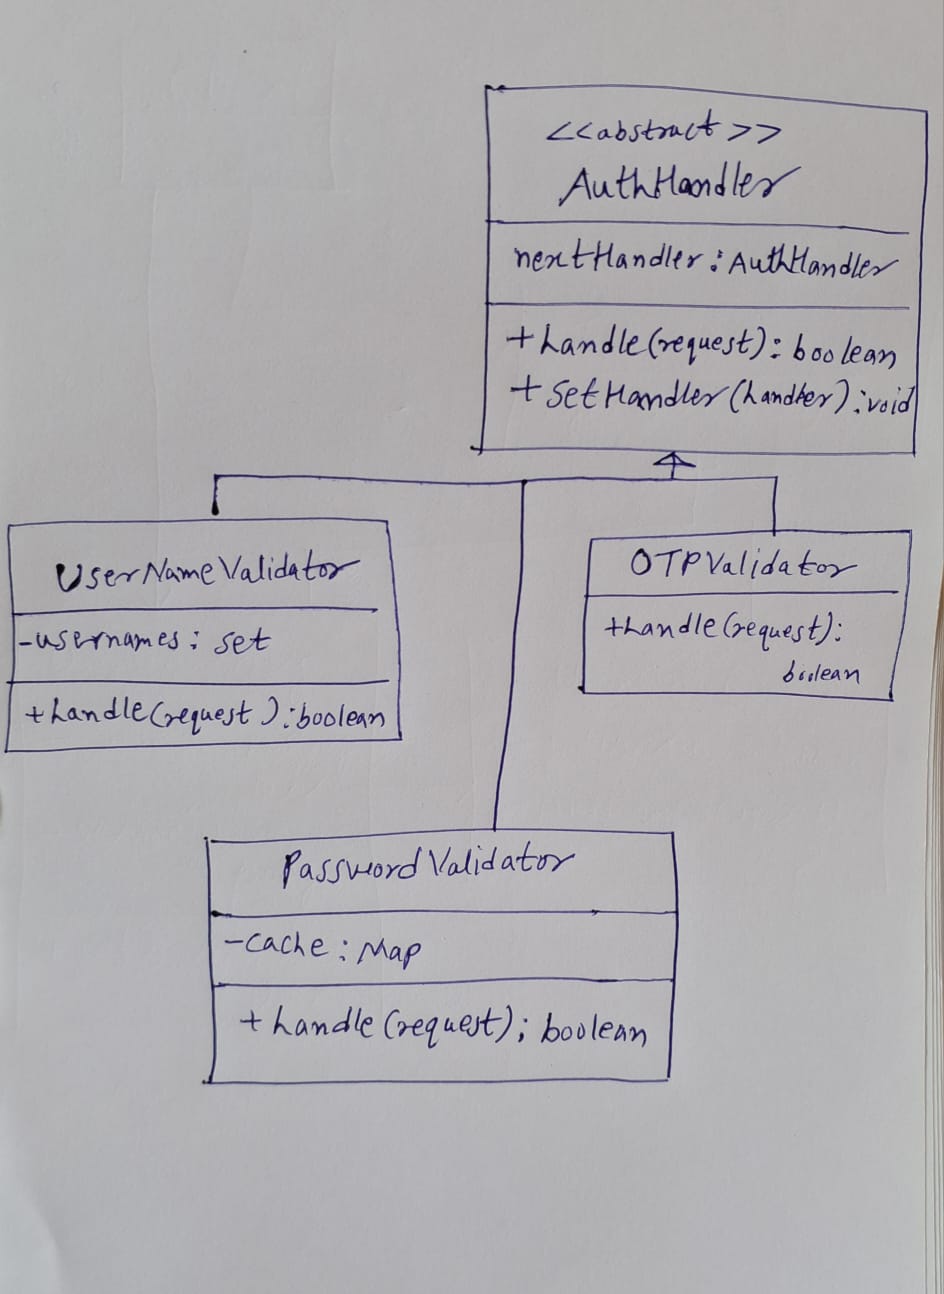 <<abstract>>
AuthHandler
nextHandler : AuthHandler
+ handle(request) : boolean
+ setHandler(handler) : void
UserNameValidator
-usernames : set
+handle(request) : boolean
OTPValidator
+handle(request) :
boolean
PasswordValidator
-cache : Map
+ handle(request) ; boolean